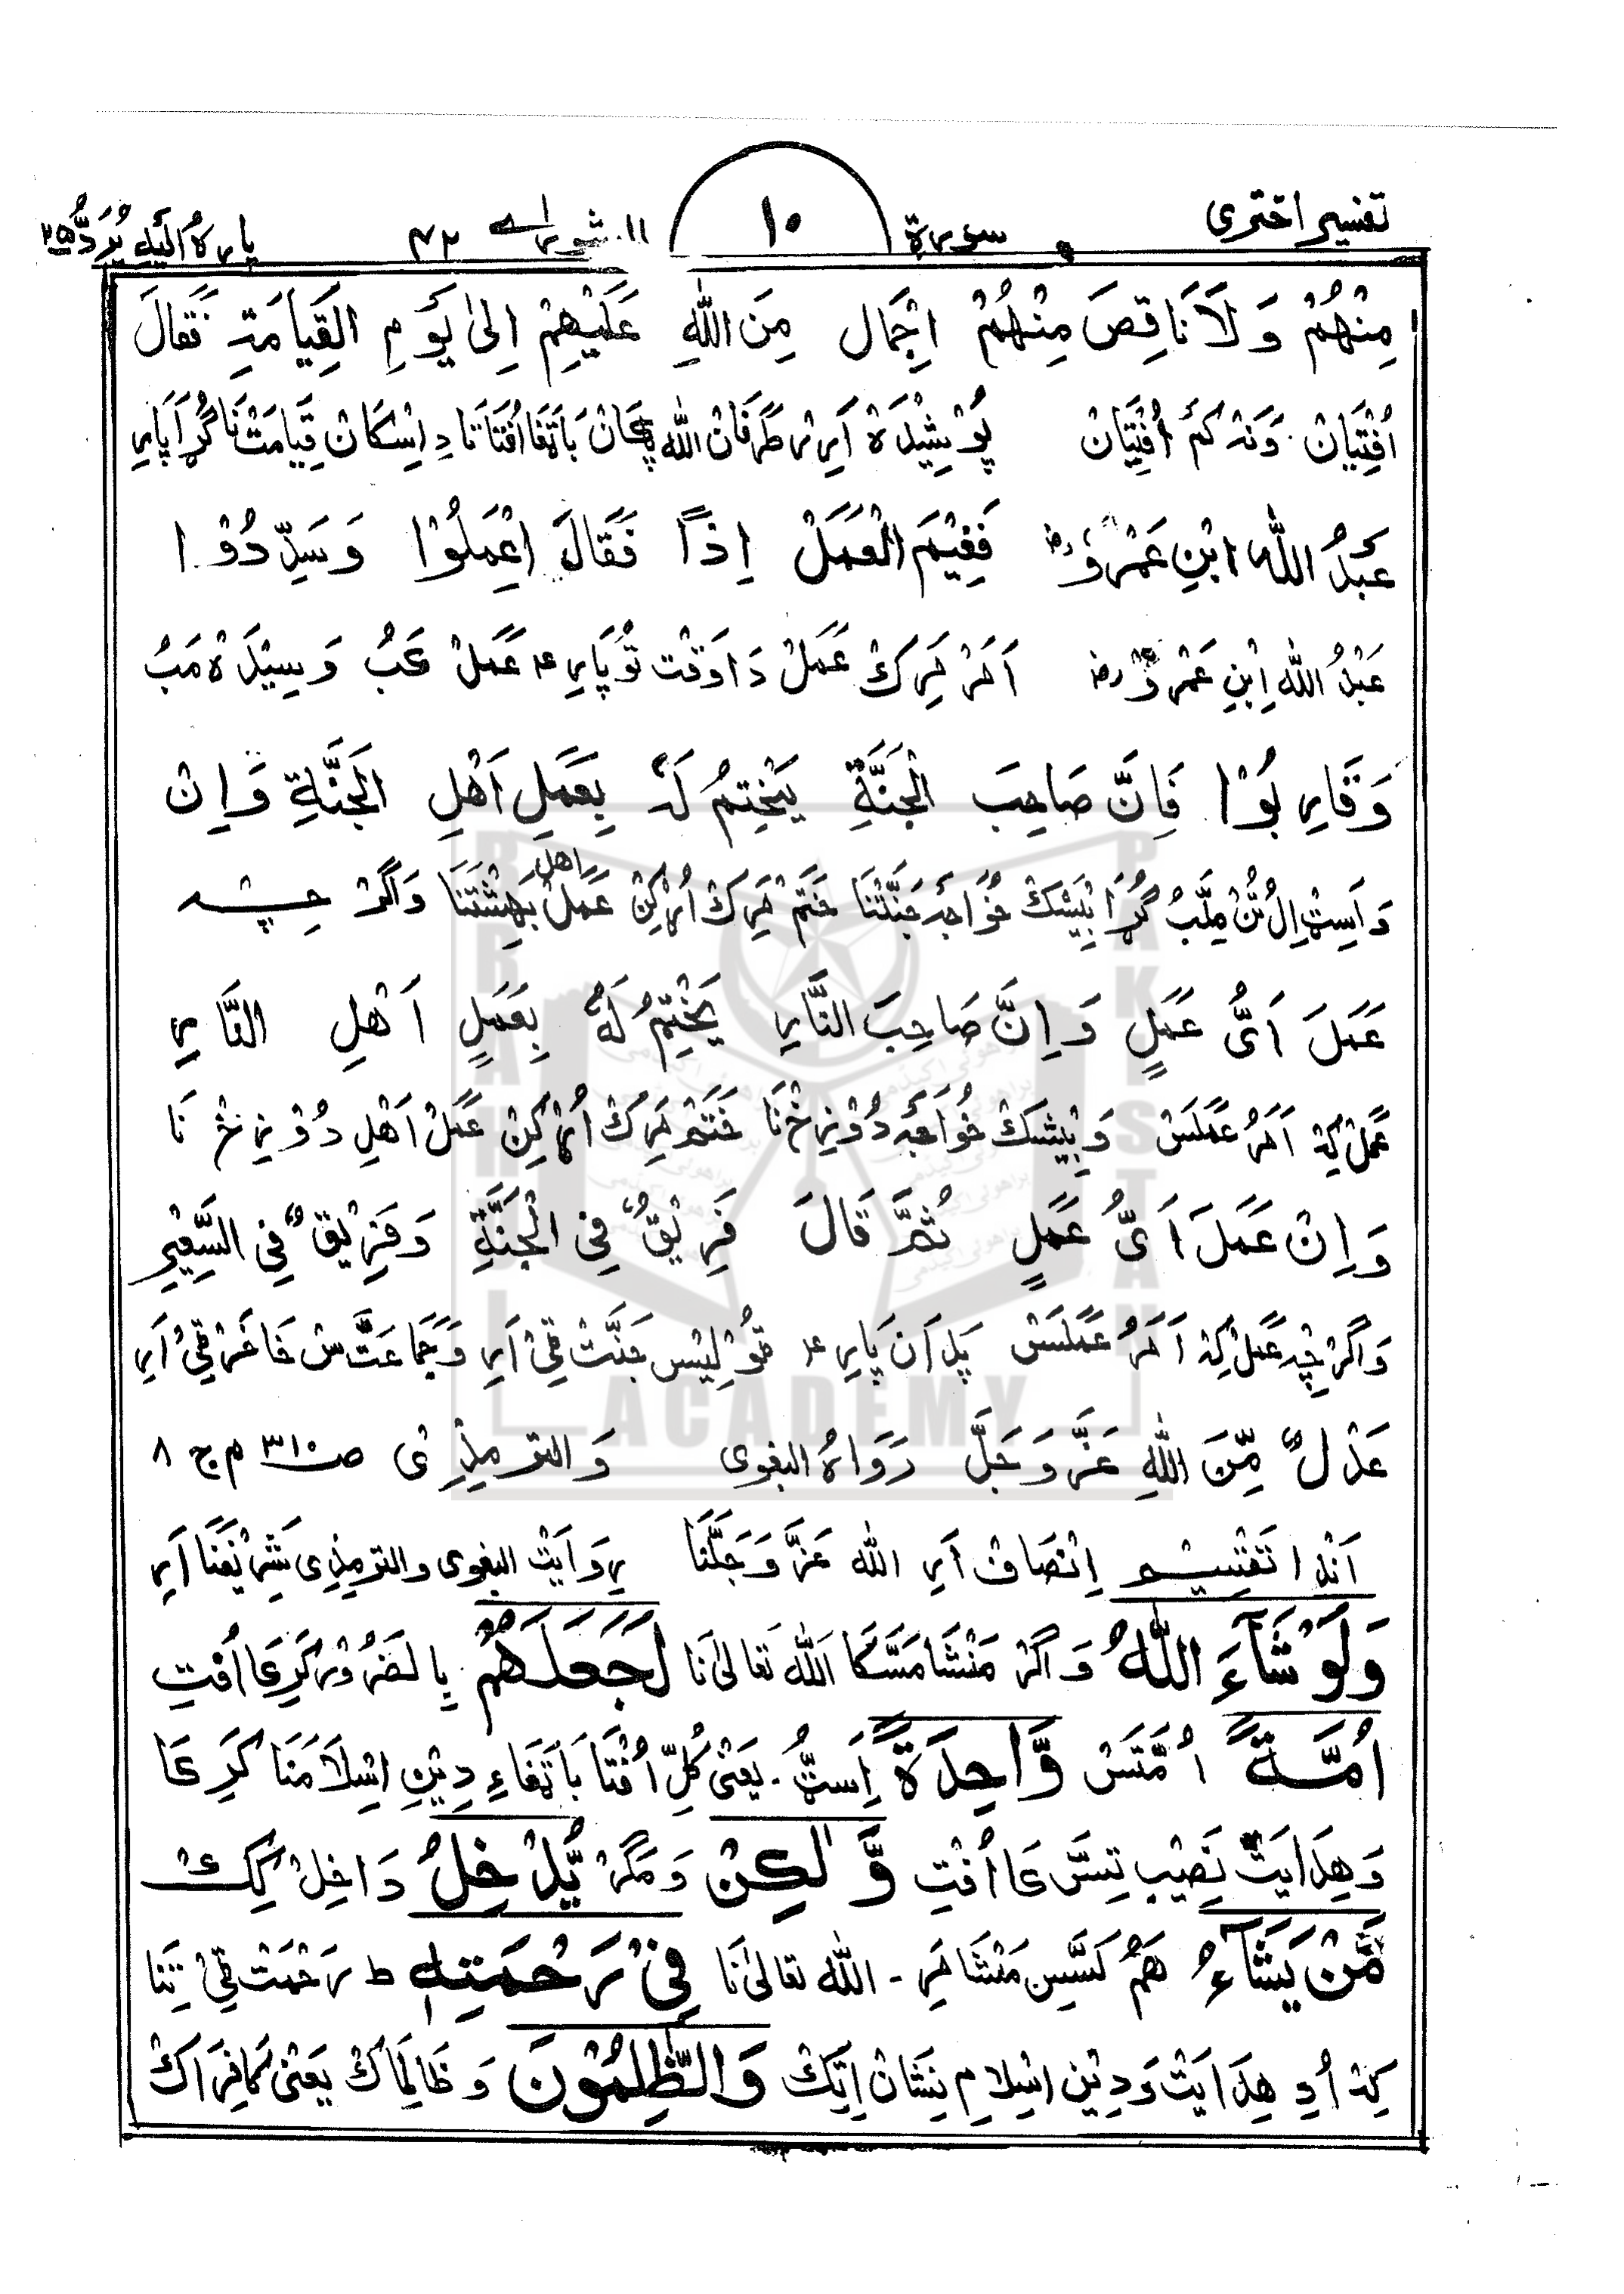 تفسیر اختری
سورة
١٠
١١ شوریٰ ے ٤٢
پارہ اليه يُرَدُّ ٢٥
مِنْهُمْ وَلَا نَاقِصَ مِنْهُمْ اِجْمَال مِنَ اللّٰهِ عَلَيْهِمْ اِلىٰ يَوْمِ الْقِيَامَةِ فَقَالَ
اُفْتِيَانْ. وَنَہ کَمْ اُفْتِيَانْ پُوْشِيْدَهْ اَرِ طَرَفَانْ اللّٰه بَاتَغَا اُفْتَا تَا دِ اِسْكَانْ قِيَامَتْ نَا گُڑا پَارِ
عَبْدُ اللّٰهِ ابْنِ عَمْرٍو رض فَفِيْمَ الْعَمَلْ اِذًا فَقَالَ اِعْمَلُوْا وَسَدِّدُوْا
عَبْدُ اللّٰه اِبْنِ عَمْرٍو رض اَمَرْ مَرِكْ عَمَلْ دَاوَقْت تُوْ پَارِ عَمَلْ كَبُ وَسِيْدَهْ مَبُ
وَقَارِبُوْا فَاِنَّ صَاحِبَ الْجَنَّةِ يَخْتِمُ لَهٗ بِعَمَلِ اَهْلِ الْجَنَّةِ وَاِنْ
وَ مَبُ گُڑا بِيْشَكْ خُوَاجَہ جَنَّتْنَا خَتَمْ مَرِكْ اُرْكِنْ عَمَلْ اهل بَهِشْتَنَا وَاَگَرْ چِہ
عَمَلَ اَىُّ عَمَلٍ وَاِنَّ صَاحِبَ النَّارِ يَخْتِمُ لَهٗ بِعَمَلِ اَهْلِ النَّارِ
عَمَلْ كِہ اَمَرُ عَمَلَسْ وَبِيْشَكْ خُوَاجَہ دُوْزِخْ نَا خَتَمْ مَرِكْ اُرْكِنْ عَمَلْ اَهْلِ دُوْزِخْ نَا
وَاِنْ عَمَلَ اَىُّ عَمَلٍ ثُمَّ قَالَ فَرِيْقٌ فِى الْجَنَّةِ وَفَرِيْقٌ فِى السَّعِيْرِ
وَاَگَرْچِہ عَمَلْ كِہ اَمَرُ عَمَلَسْ پَدَانْ پَارِ ٹُوْلِيْس جَنَّتْ ٹِىْ اَرِ وَجَمَاعَتْ س خَاخَرْ ٹِىْ اَرِ
عَدْلٌ مِّنَ اللّٰهِ عَزَّ وَجَلَّ رَوَاهُ البغوى وَالترمِذِى ص ٣١٠ م ج ٨
اَنْدا تَقْسِيْم اِنْصَافْ اَرِ اللّٰه عَزَّ وَجَلَّنَا رِوَايَتْ البغوى والترمِذِى شَرِيْفَنَا اَرِ
وَلَوْ شَآءَ اللّٰهُ وَاَگَرْ مَنْشَا مَسَّكَا اَللّٰه تَعَالىٰ نَا لَجَعَلَهُمْ بِالضَرُوْر كَرِعَا اُفْتِ
اُمَّةً اُمَّتَسْ وَّاحِدَةً اَسِٹُ. يَعْنِى كُلِّ اُفْتَا بَاتَغَاءِ دِيْنِ اِسْلَامَنَا كَرِعَا
وَهِدَايَتْ نَصِيْب تِسَّرَعَا اُفْتِ وَّلٰكِنْ وَمَگَرْ يُّدْخِلُ دَاخِلْ كِكْ
مَّنْ يَّشَآءُ هَمُ كَسَّيسِ مَنْشَا مَرِ ـ اللّٰه تعالىٰ نَا فِىْ رَحْمَتِهٖ ط رَحْمَتْ ٹِىْ تِنَا
كِہ اُدِ هِدَايَتْ وَدِيْنِ اِسْلَامِ نِشَانْ اِتِكْ وَالظّٰلِمُوْنَ وَظَالِمَاكْ يَعْنِى كَافِرَاكْ
BRAHUI
ACADEMY
PAKISTAN